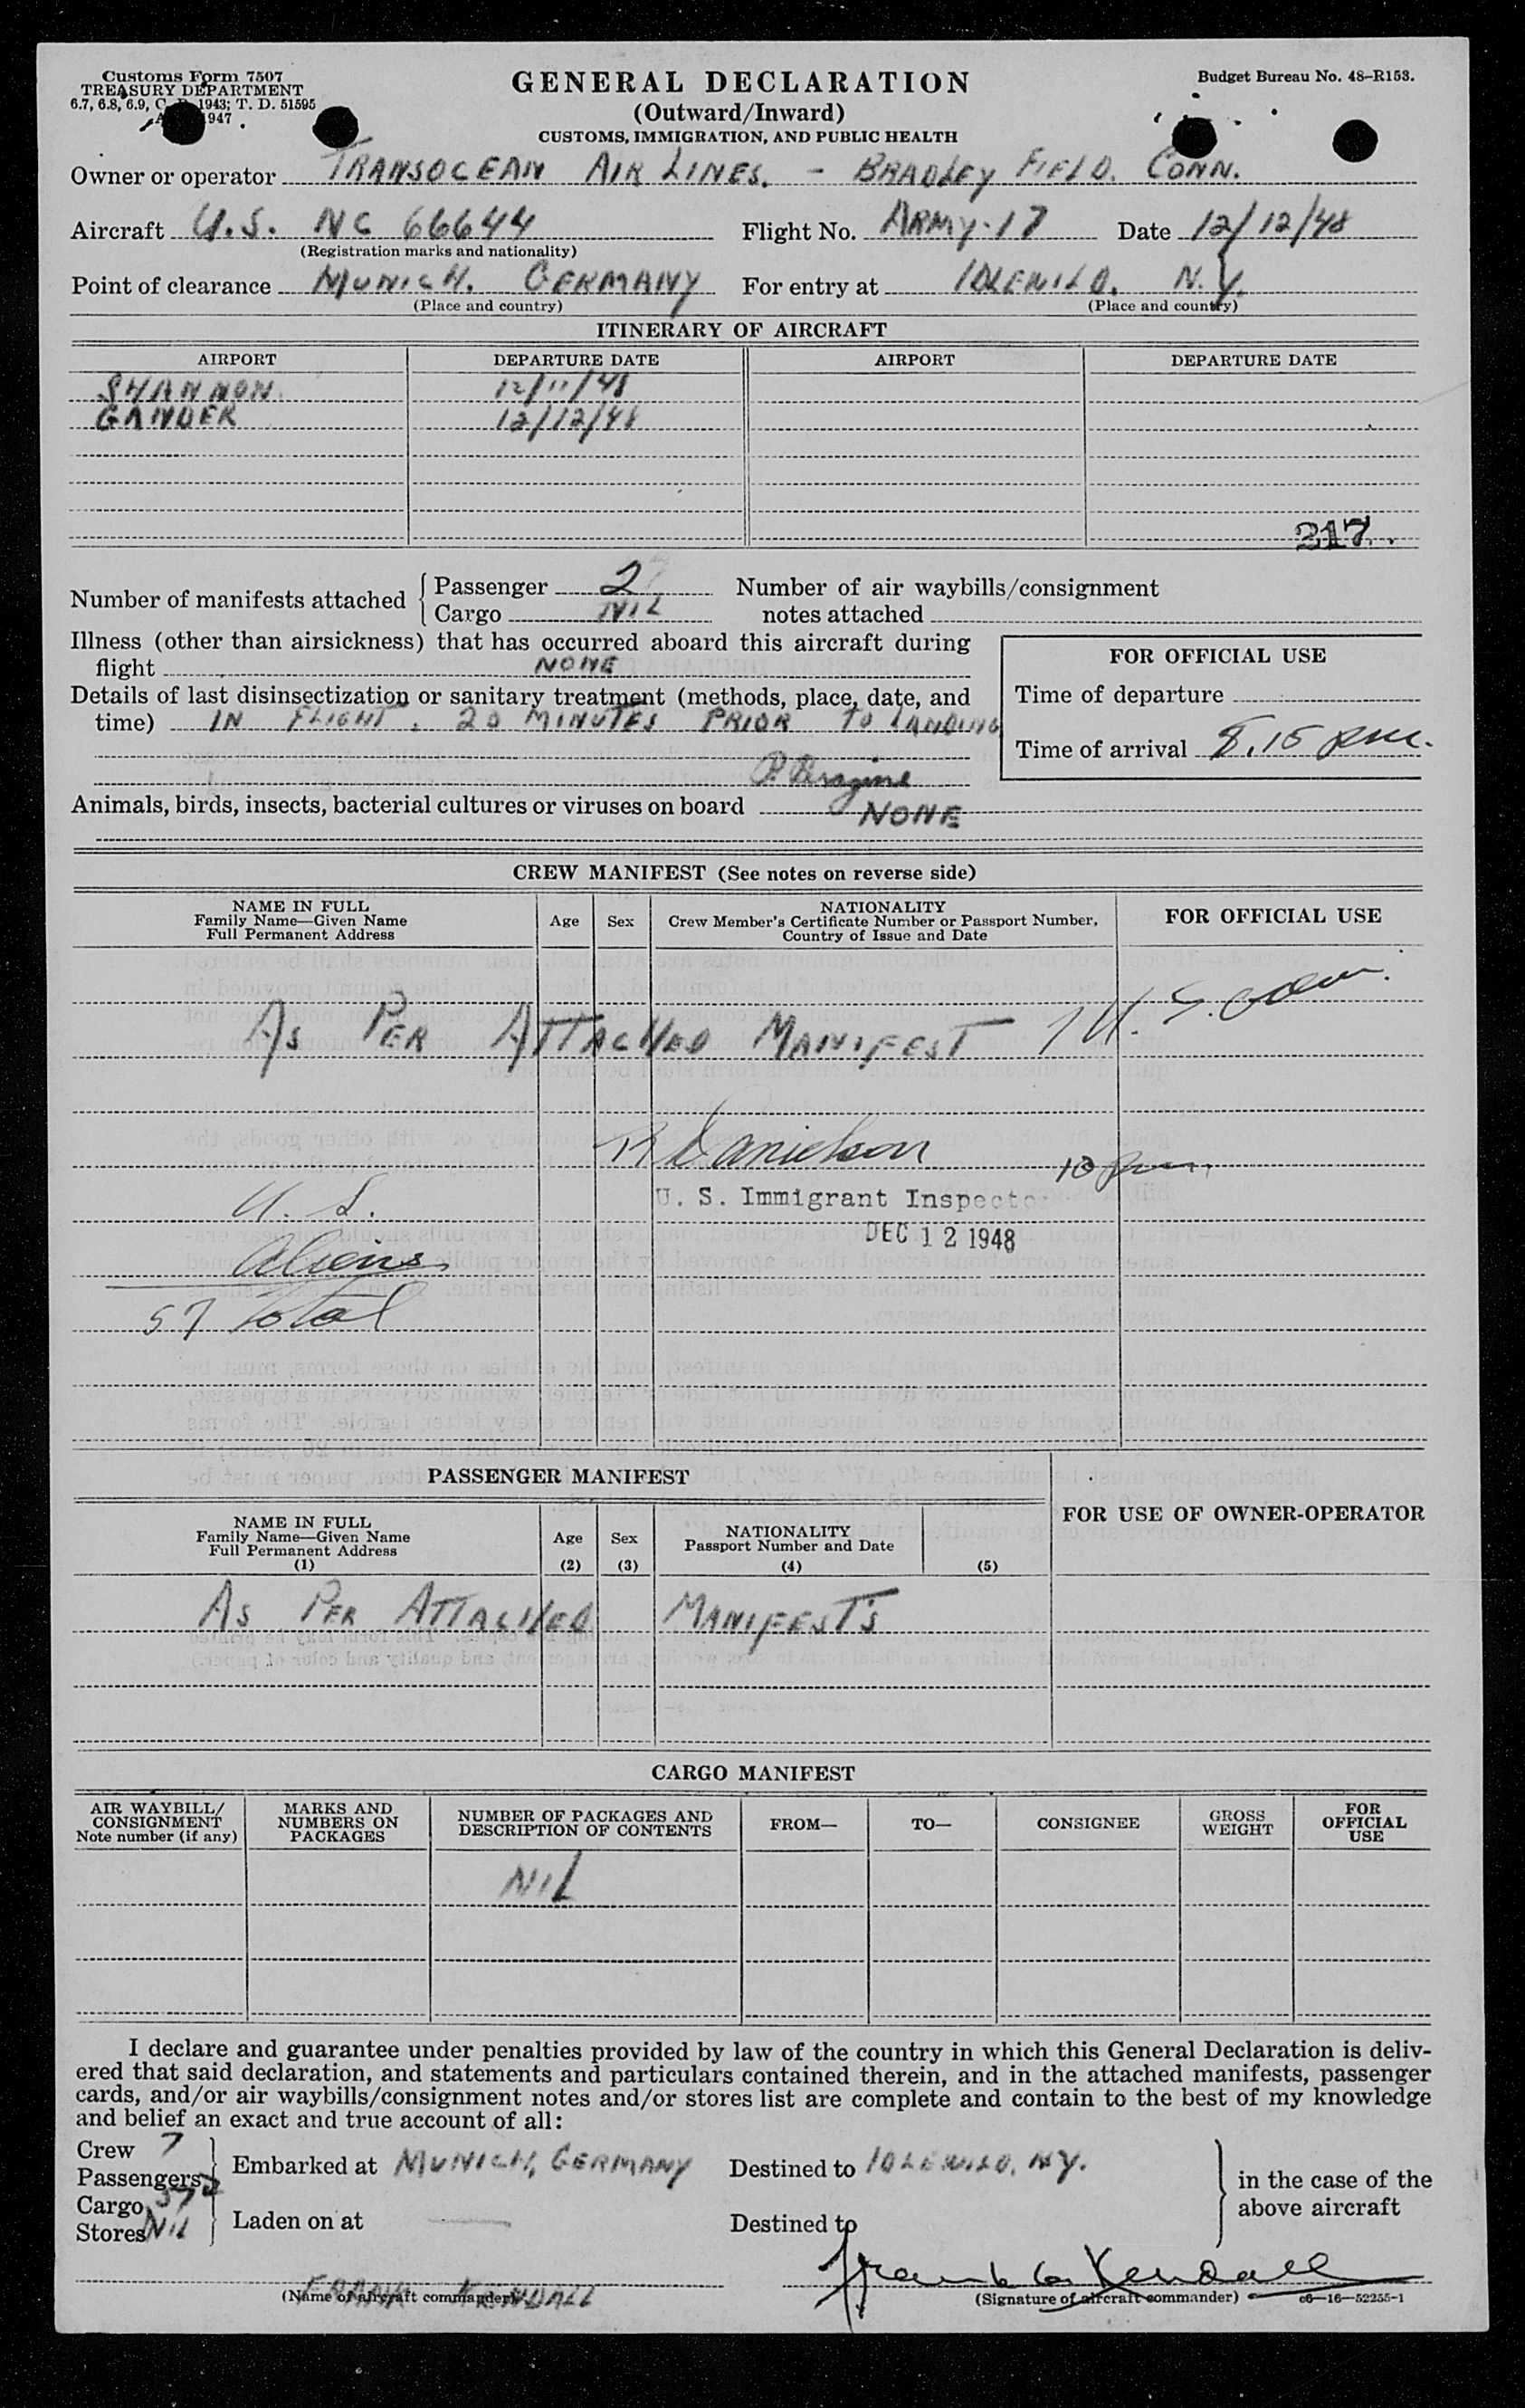 Customs Form 7507
TREASURY DEPARTMENT
6.7, 6.8, 6.9, C. R. 1943; T. D. 51595
1947
GENERAL DECLARATION
(Outward/Inward)
CUSTOMS, IMMIGRATION, AND PUBLIC HEALTH
Budget Bureau No. 48-R153.
Owner or operator TRANSOCEAN AIR LINES. - BRADLEY FIELD. CONN.
Aircraft U.S. NC 66644 Flight No. ARMY-17 Date 12/12/48
(Registration marks and nationality)
Point of clearance MUNICH. GERMANY For entry at IDLEWILD. N.Y.
(Place and country) (Place and country)
ITINERARY OF AIRCRAFT
AIRPORT DEPARTURE DATE AIRPORT DEPARTURE DATE
SHANNON. 12/11/48
GANDER 12/12/48
217
Number of manifests attached Passenger 2 Number of air waybills/consignment
Cargo NIL notes attached
Illness (other than airsickness) that has occurred aboard this aircraft during
flight NONE
Details of last disinsectization or sanitary treatment (methods, place, date, and
time) IN FLIGHT. 20 MINUTES PRIOR TO LANDING
FOR OFFICIAL USE
Time of departure
Time of arrival 8.15 pm.
Animals, birds, insects, bacterial cultures or viruses on board NONE
CREW MANIFEST (See notes on reverse side)
NAME IN FULL
Family Name—Given Name
Full Permanent Address
Age
Sex
NATIONALITY
Crew Member's Certificate Number or Passport Number,
Country of Issue and Date
FOR OFFICIAL USE
AS PER ATTACHED MANIFEST 7 U.S.
Danielson 10 pm
U. S. Immigrant Inspector
DEC 12 1948
U. S.
Aliens
57 Total
PASSENGER MANIFEST
NAME IN FULL
Family Name—Given Name
Full Permanent Address
(1)
Age
(2)
Sex
(3)
NATIONALITY
Passport Number and Date
(4)
(5)
FOR USE OF OWNER-OPERATOR
AS PER ATTACHED MANIFEST'S
CARGO MANIFEST
AIR WAYBILL/
CONSIGNMENT
Note number (if any)
MARKS AND
NUMBERS ON
PACKAGES
NUMBER OF PACKAGES AND
DESCRIPTION OF CONTENTS
FROM—
TO—
CONSIGNEE
GROSS
WEIGHT
FOR
OFFICIAL
USE
NIL
I declare and guarantee under penalties provided by law of the country in which this General Declaration is deliv-
ered that said declaration, and statements and particulars contained therein, and in the attached manifests, passenger
cards, and/or air waybills/consignment notes and/or stores list are complete and contain to the best of my knowledge
and belief an exact and true account of all:
Crew 7
Passengers 57
Cargo
Stores NIL
Embarked at MUNICH, GERMANY Destined to IDLEWILD, NY.
Laden on at Destined to
in the case of the
above aircraft
FRANK KENDALL
(Name of aircraft commander)
Frank G. Kendall
(Signature of aircraft commander) c6—16—52255-1